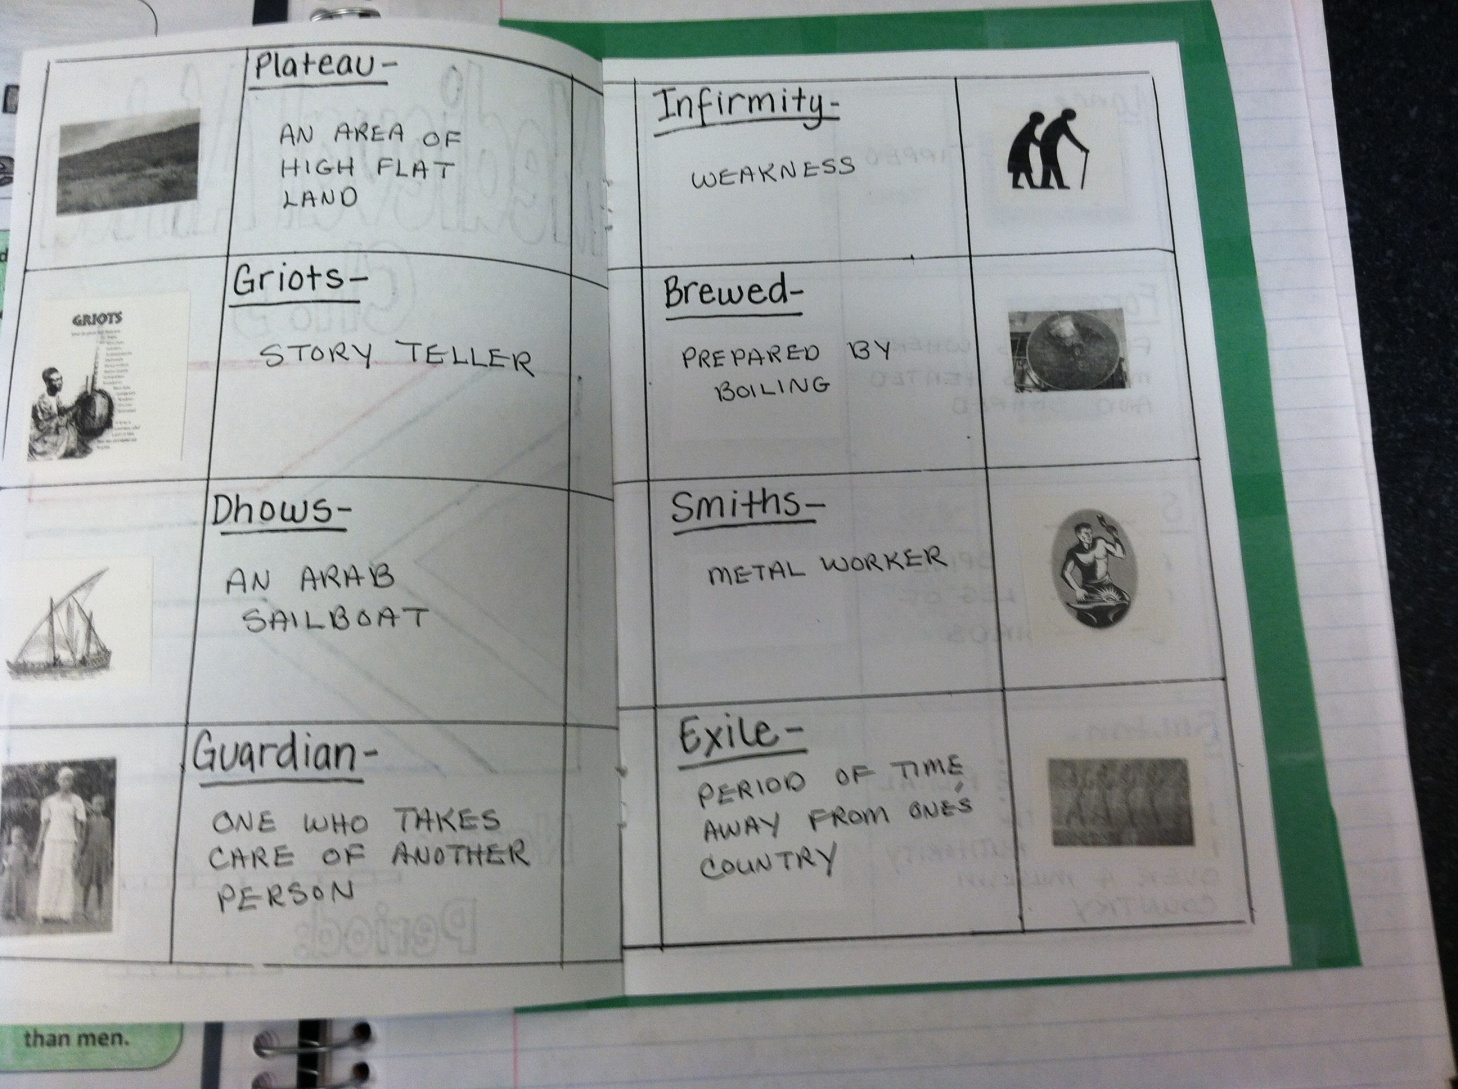 Plateau-
AN AREA OF
HIGH FLAT
LAND
GRIOTS
Griots-
STORY TELLER
Dhows-
AN ARAB
SAILBOAT
Guardian-
ONE WHO TAKES
CARE OF ANOTHER
PERSON
than men.
Infirmity-
WEAKNESS
Brewed-
PREPARED BY
BOILING
Smiths-
METAL WORKER
Exile-
PERIOD OF TIME
AWAY FROM ONE'S
COUNTRY